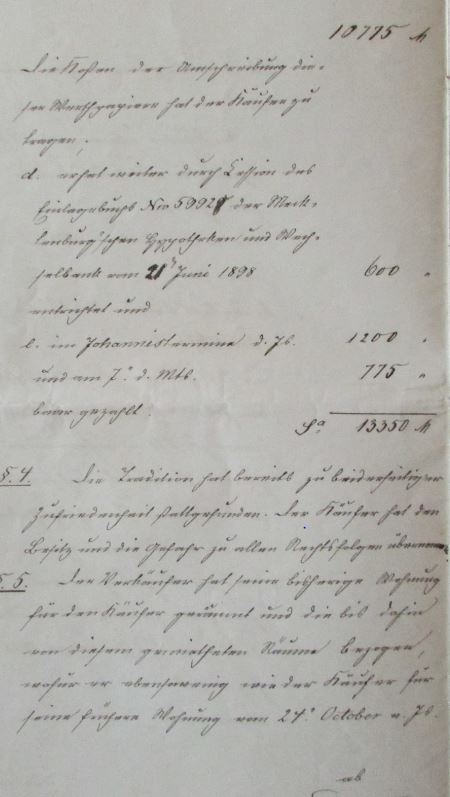 10775 M
Die Kosten der Umschreibung die-
ser Werthpapiere hat der Käufer zu
tragen,
d. er hat weiter durch Cession des
Einlagebuchs No 5992 der Meck-
lenburg'schen Hypotheken und Wech-
selbank vom 21ᵗ Juni 1898 600 "
entrichtet und
e. im Johannistermine d. Js. 1200 "
und am 7. d. Mts. 775 "
baar gezahlt.
Sa. 13350 M
§. 4. Die Tradition hat bereits zu beiderseitiger
Zufriedenheit stattgefunden. Der Käufer hat den
Besitz und die Gefahr zu allen Rechtsfolgen übernom
§. 5. Der Verkäufer hat seine bisherige Wohnung
für den Käufer geräumt und die bis dahin
von diesem gemietheten Räume bezogen,
wofür er ebensowenig wie der Käufer für
seine frühere Wohnung vom 24. October v. Js.
ab